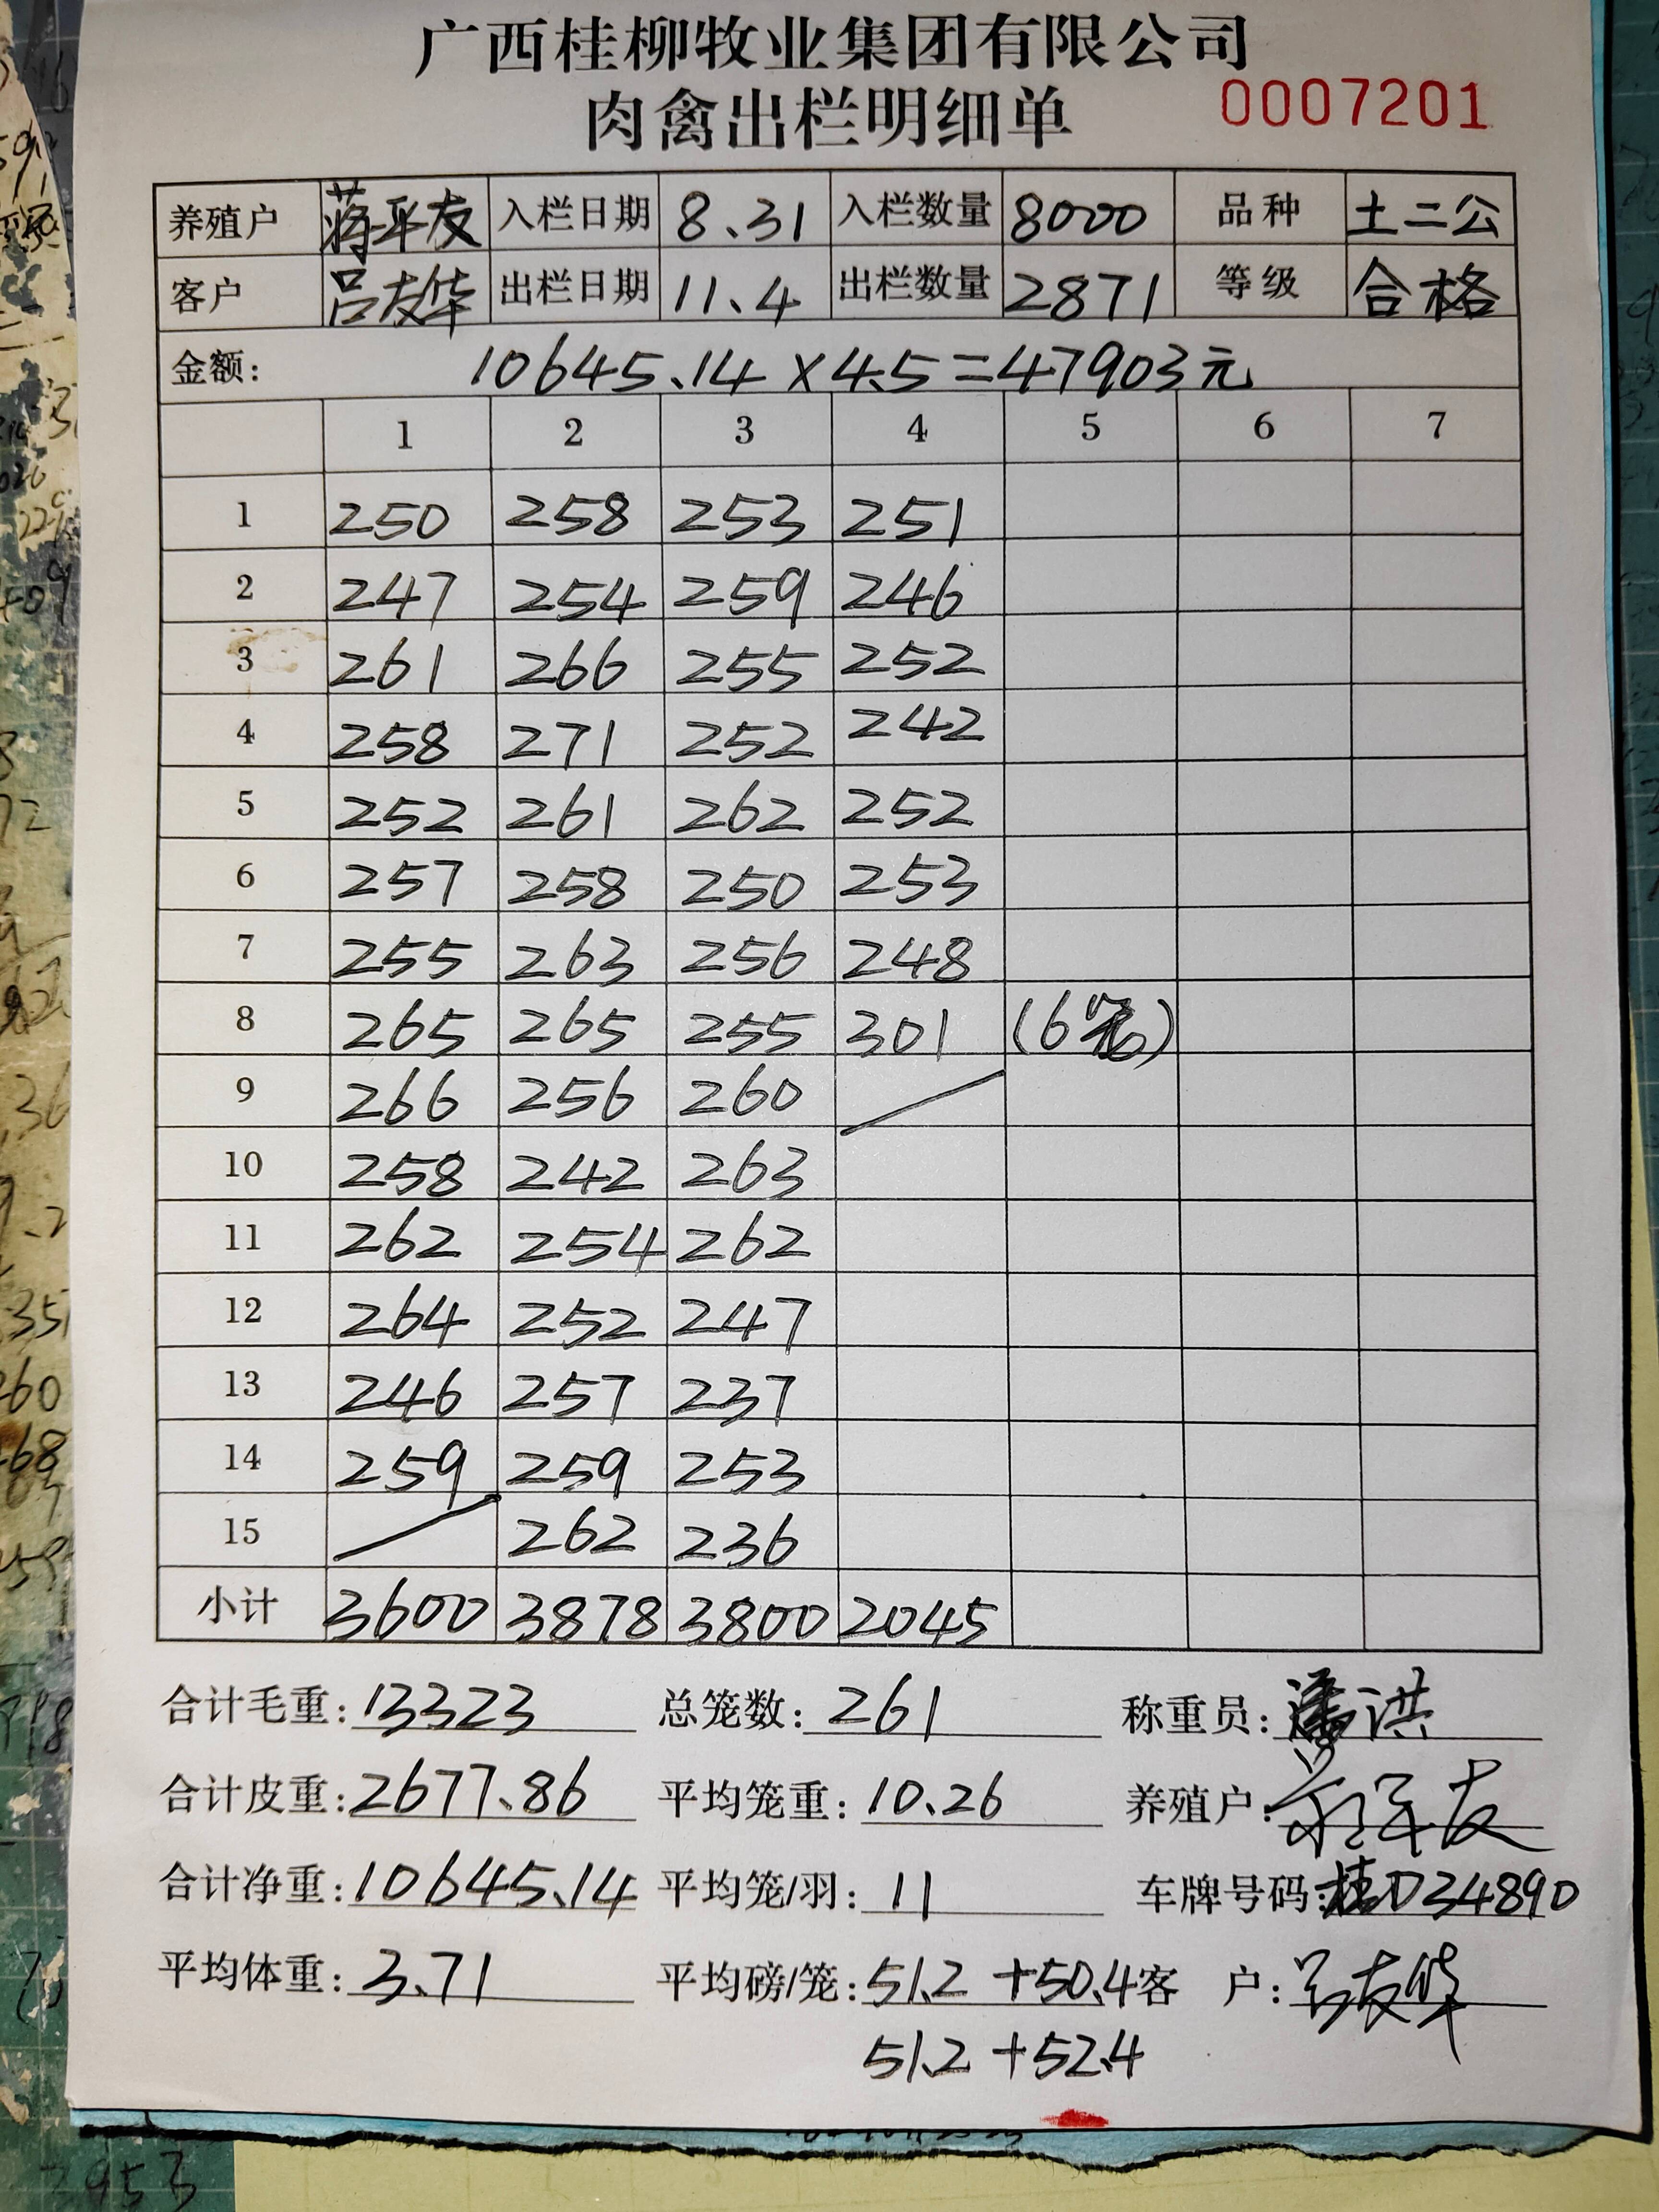 广西桂柳牧业集团有限公司
肉禽出栏明细单 0007201
养殖户 蒋平友 入栏日期 8.31 入栏数量 8000 品种 土二公
客户 吕友华 出栏日期 11.4 出栏数量 2871 等级 合格
金额: 10645.14×4.5=47903元
1 2 3 4 5 6 7
1 250 258 253 251
2 247 254 259 246
3 261 266 255 252
4 258 271 252 242
5 252 261 262 252
6 257 258 250 253
7 255 263 256 248
8 265 265 255 301 (6笼)
9 266 256 260
10 258 242 263
11 262 254 262
12 264 252 247
13 246 257 237
14 259 259 253
15 262 236
小计 3600 3878 3800 2045
合计毛重: 13323 总笼数: 261 称重员: 潘洪
合计皮重: 2677.86 平均笼重: 10.26 养殖户: 蒋平友
合计净重: 10645.14 平均笼/羽: 11 车牌号码: 桂D34890
平均体重: 3.71 平均磅/笼: 51.2+50.4 客户: 吕友华
51.2+52.4
2953